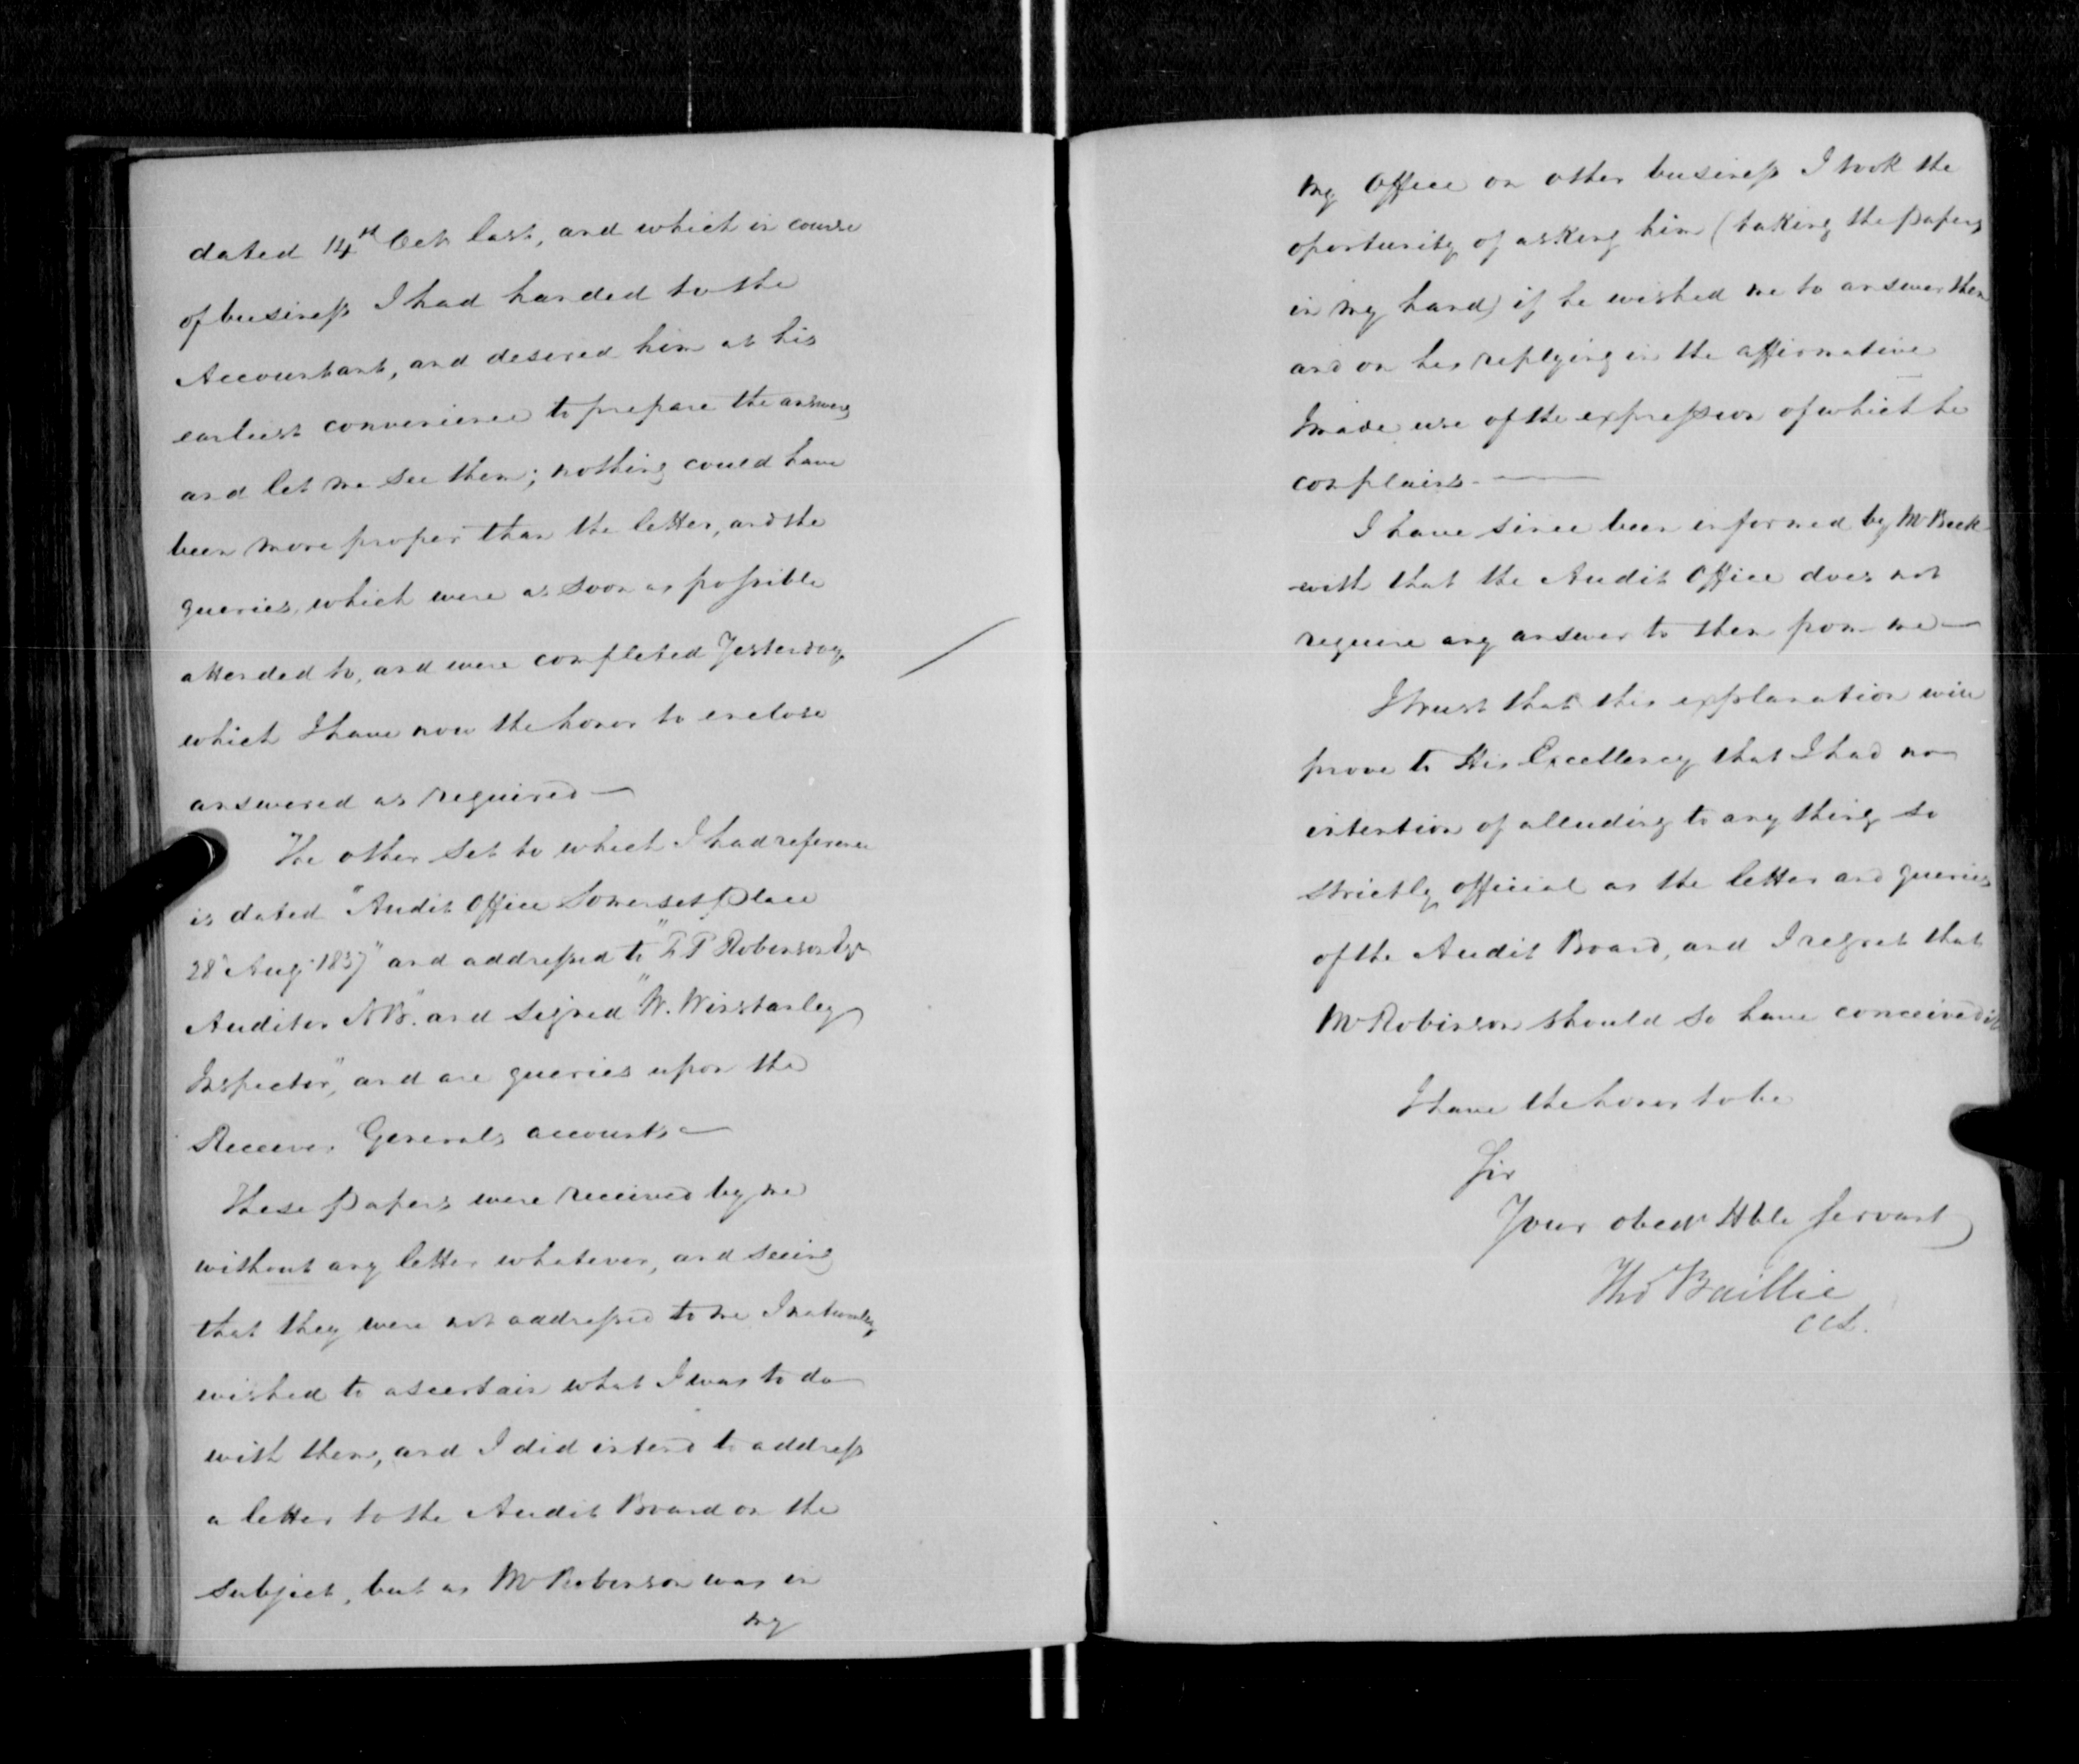 dated 14th Oct last, and which in course
of business I had handed to the
Accountant, and desired him at his
earliest convenience to prepare the answers
and let me see them; nothing could have
been more proper than the letter, and the
queries, which were as soon as possible
attended to, and were completed Yesterday
which I have now the honor to enclose
answered as required —
The other set to which I had reference
is dated "Audit Office Somerset Place
28 Aug. 1837" and addressed to "F P Robinson Esqr
Auditor N.B." and signed "W. Winstanley
Inspector", and are queries upon the
Receiver Generals accounts —
These Papers were received by me
without any letter whatever, and seeing
that they were not addressed to me I naturally
wished to ascertain what I was to do
with them, and I did intend to address
a letter to the Audit Board on the
subject, but as Mr Robinson was in
my
my Office on other business I took the
oportunity of asking him (taking the papers
in my hand) if he wished me to answer them
and on his replying in the affirmative
I made use of the expression of which he
complains. —
I have since been informed by Mr Beck-
-with that the Audit Office does not
require any answer to them from me —
I trust that this explanation will
prove to His Excellency that I had no
intention of alluding to any thing so
strictly official as the letter and queries
of the Audit Board, and I regret that
Mr Robinson should so have conceived it
I have the honor to be
Sir
Your obedt Hble Servant
Thos Baillie
CCL.